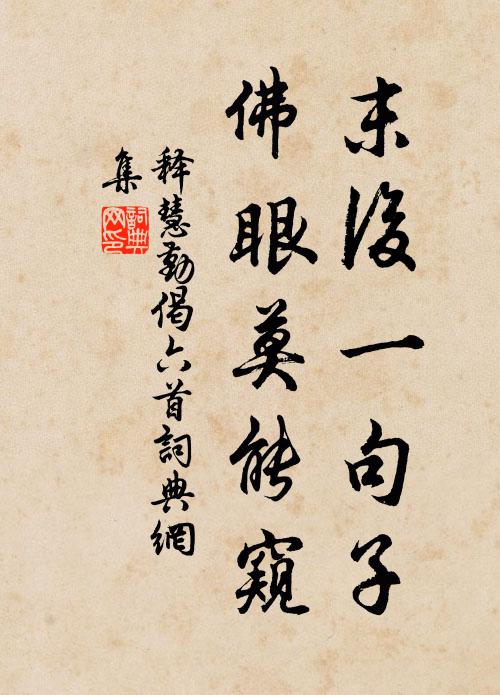 末後一句子
佛眼莫能窺
释慧勤偈六首詞典網
集
詞典
网印